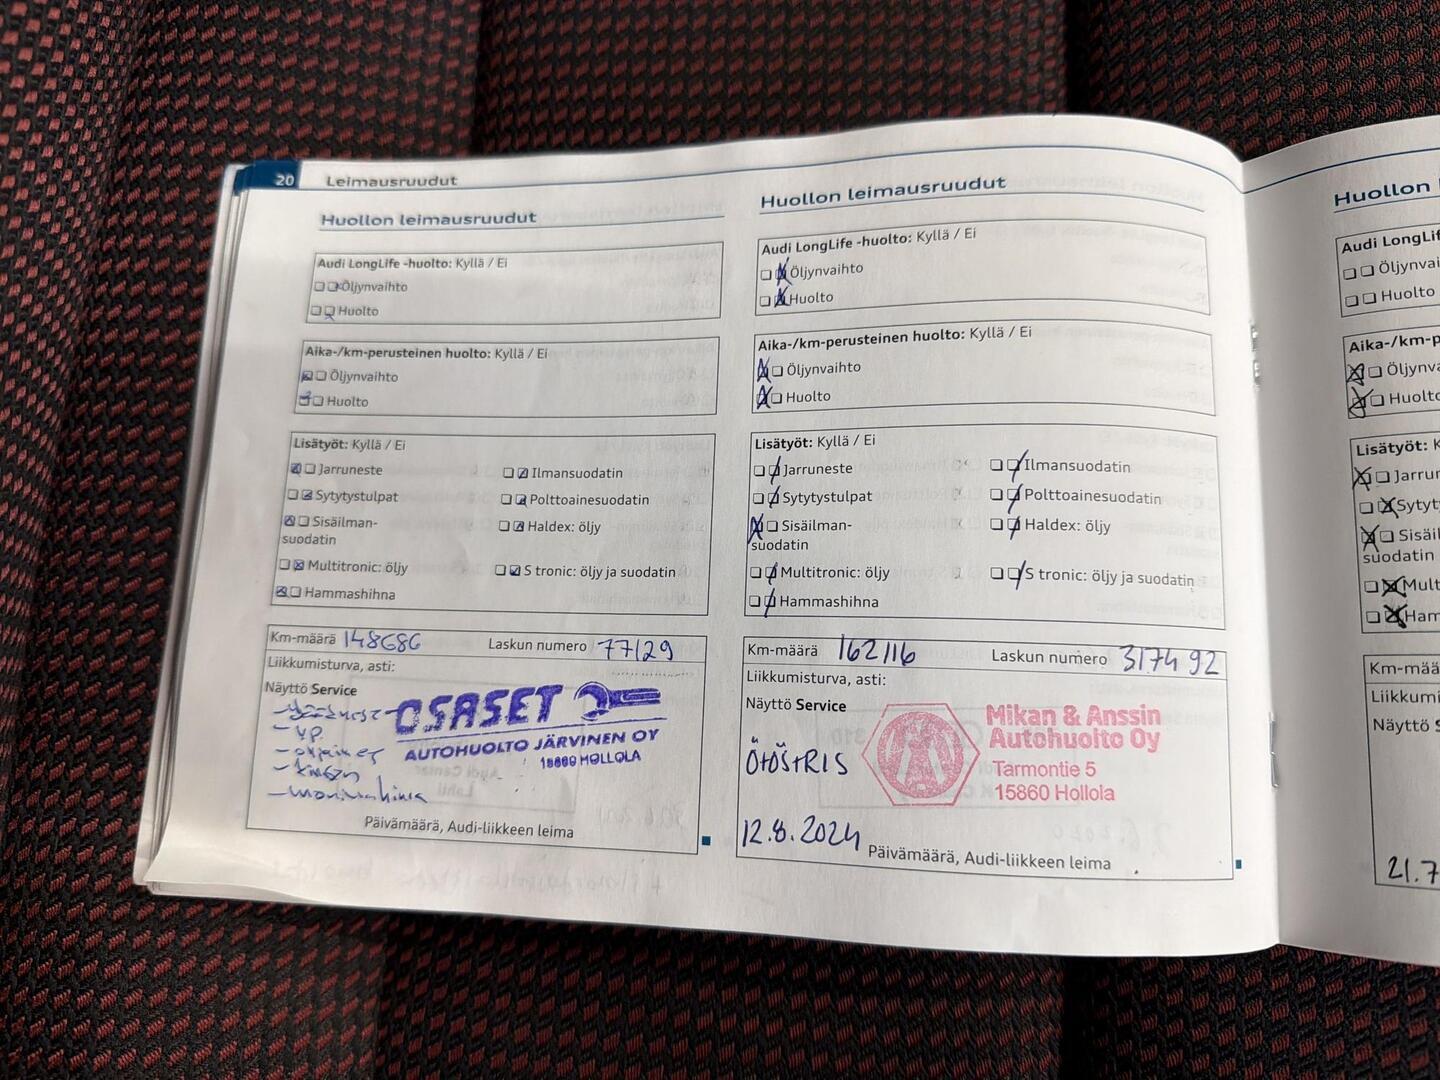 20 Leimausruudut
Huollon leimausruudut
Audi LongLife -huolto: Kyllä / Ei
Öljynvaihto
Huolto
Aika-/km-perusteinen huolto: Kyllä / Ei
Öljynvaihto
Huolto
Lisätyöt: Kyllä / Ei
Jarruneste Ilmansuodatin
Sytytystulpat Polttoainesuodatin
Sisäilman- Haldex: öljy
suodatin
Multitronic: öljy S tronic: öljy ja suodatin
Hammashihna
Km-määrä 148686 Laskun numero 77129
Liikkumisturva, asti:
Näyttö Service
OSASET
AUTOHUOLTO JÄRVINEN OY
HOLLOLA
Päivämäärä, Audi-liikkeen leima
Huollon leimausruudut
Audi LongLife -huolto: Kyllä / Ei
Öljynvaihto
Huolto
Aika-/km-perusteinen huolto: Kyllä / Ei
Öljynvaihto
Huolto
Lisätyöt: Kyllä / Ei
Jarruneste Ilmansuodatin
Sytytystulpat Polttoainesuodatin
Sisäilman- Haldex: öljy
suodatin
Multitronic: öljy S tronic: öljy ja suodatin
Hammashihna
Km-määrä 162116 Laskun numero 317492
Liikkumisturva, asti:
Näyttö Service
Mikan & Anssin
Autohuolto Oy
Tarmontie 5
15860 Hollola
Ö+ÖS+RIS
12.8.2024
Päivämäärä, Audi-liikkeen leima
Huollon
Audi LongLif
Öljynvai
Huolto
Aika-/km-p
Öljynva
Huolto
Lisätyöt: K
Jarrun
Sytyt
Sisäil
suodatin
Mult
Ham
Km-mää
Liikkumi
Näyttö S
21.7